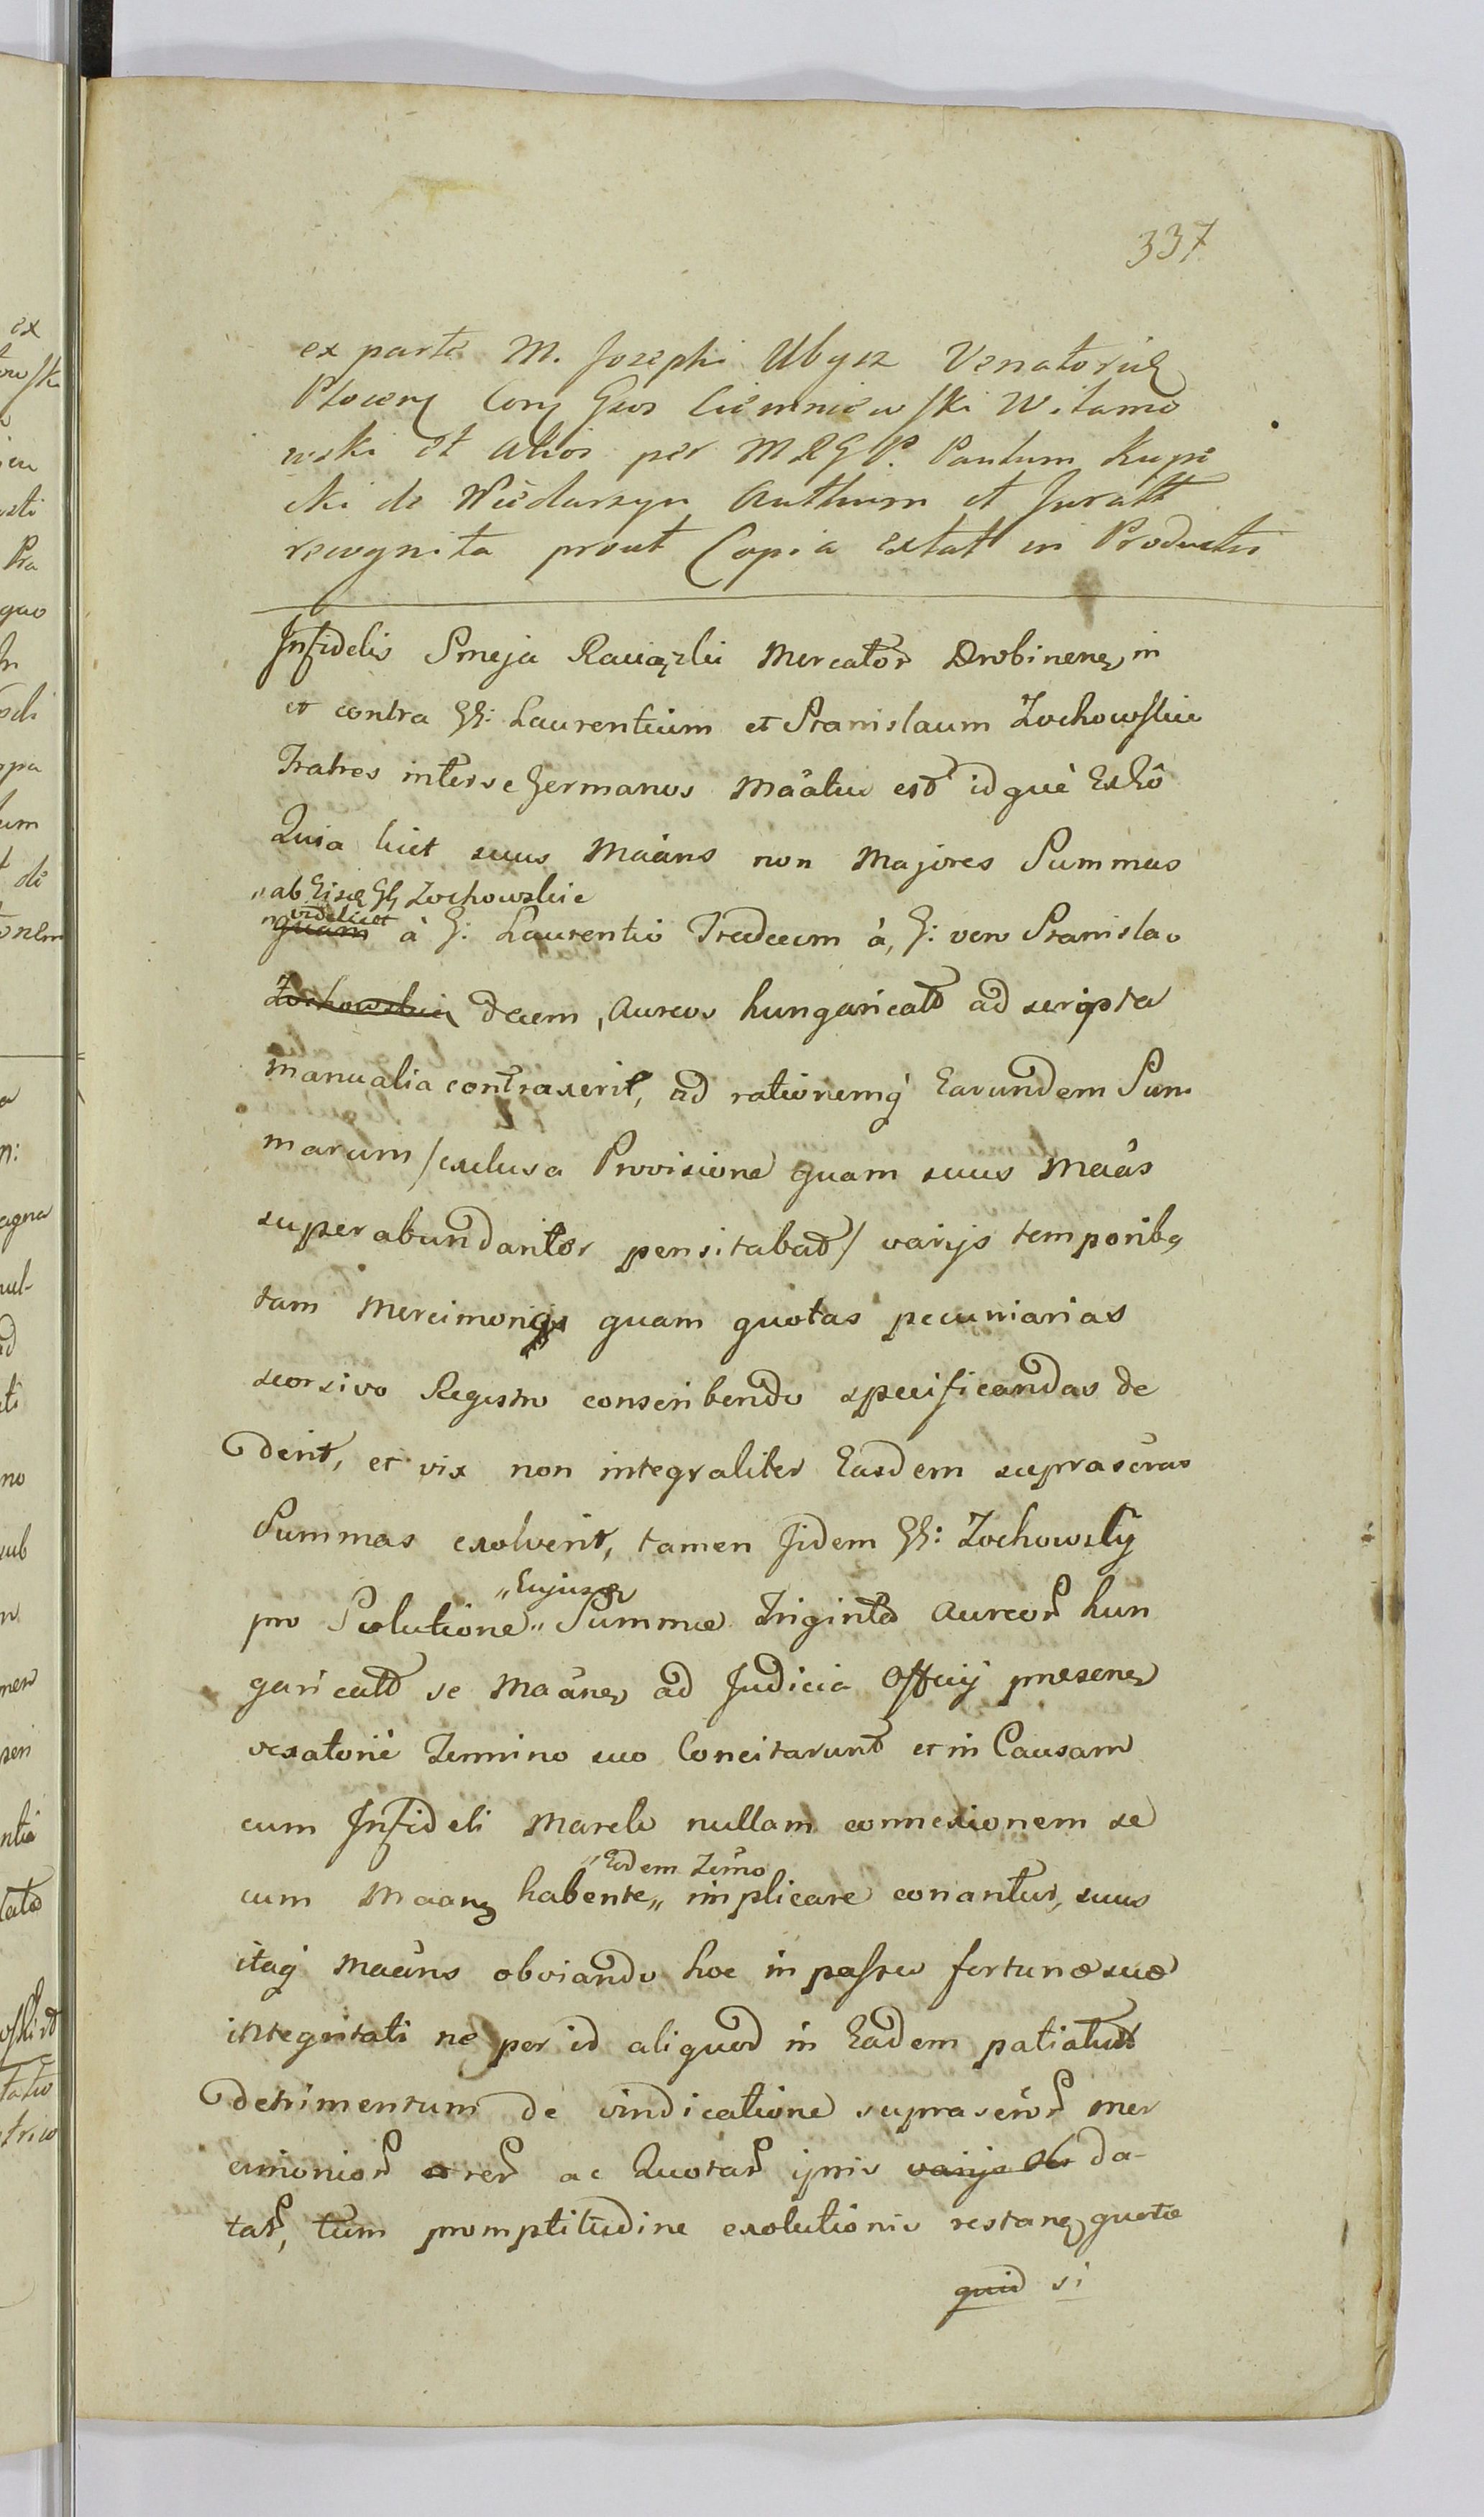 337
ex parte M. Josephi Ubysz Venatoris
Plocen Cony Gsos Ciemniewski Witamo
wski et alios per MRGP. Paulum Kupi
cki de authum et Juratt
recognita prout Copia extat in Productis
Infidelis Smeja Raciązki Mercator Drobinens, in
et contra GG: Laurentium et Stanislaum Zochowskie
Fratres interse Germanos Maatur est idque
Quia licet suus Maans non Majores Summas
"ab Eisd GG Zochowskie
"videlicet
quam à G: Laurentio Tredecim à, G: vero Stanislao
Zochowskich decem, aureos hungaricalt ad scripta
manualia contraxerit, ad rationemq Earundem Sum
marum /exclusa Provisione quam suus Maas
superabundanter pensitabat/ varijs temporibq
tam Mercimonijs quam quotas pecuniarias
seorsivo Registro conscribendo specificandas de
derit, et vix non integraliter Easdem suprascras
Summas exolverit, tamen Jidem GG: Zochowsky
"Eujusd
pro Solutione" Summæ Triginta Aureor hun
garicalt se Maans ad Judicia Officij præsens
vexatorie Termino suo Concitarunt et in Causam
cum Infideli Marek nullam connexionem se
"Eodem Termo
cum Maans habente" implicare conantur, suus
itaq Maans obviando hoc in passu fortunæ suæ
integritati ne per id aliquod in Eadem patiatur
detrimentum de vindicatione suprascror mer
cimonior et rer ac Quotar ipsis varijs da-
tar, tum promptitudine exolutionis restans quotæ
quid si